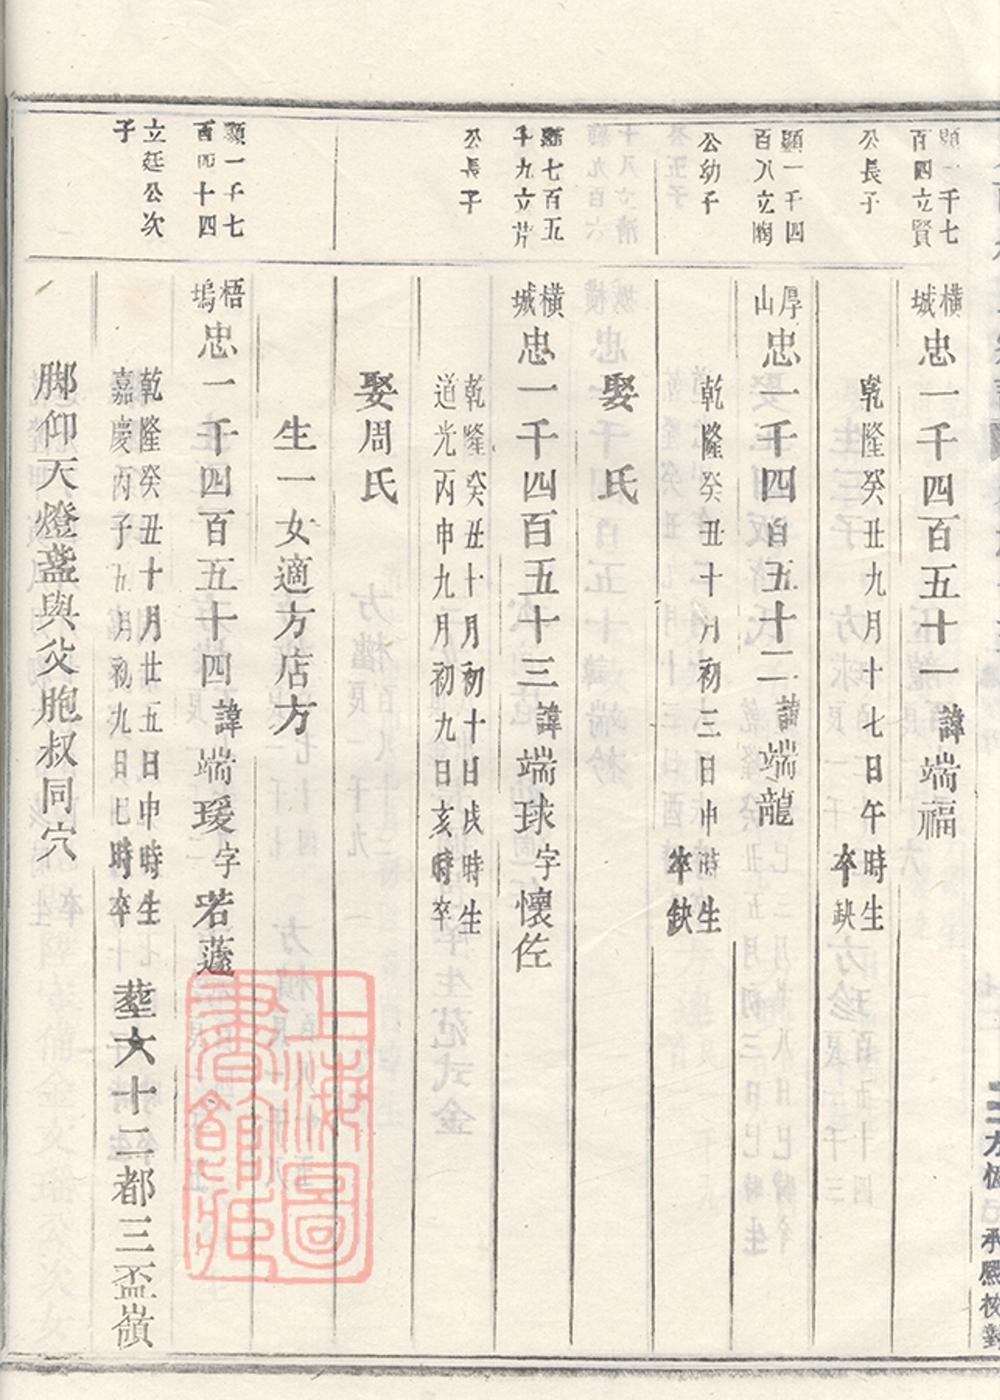 顯一千七
百四立賢
公長子
橫城忠一千四百五十一諱端福
乾隆癸丑九月十七日午時生
卒缺
顯一千四
百八立陶
公幼子
厚山忠一千四百五十二諱端龍
乾隆癸丑十月初三日申時生
卒缺
娶 氏
顯七百五
十九立芹
公長子
橫城忠一千四百五十三諱端球字懷佐
乾隆癸丑十月初十日戌時生
道光丙申九月初九日亥時卒
娶周氏
生一女適方店方
顯一千七
百四十四
立廷公次
子
梧塢忠一千四百五十四諱端瑗字若蘧
乾隆癸丑十月廿五日申時生
嘉慶丙子五月初九日巳時卒
葬大十二都三盃嶺
脚仰天燈盞與父胞叔同穴
上海圖書館藏
承熙校對